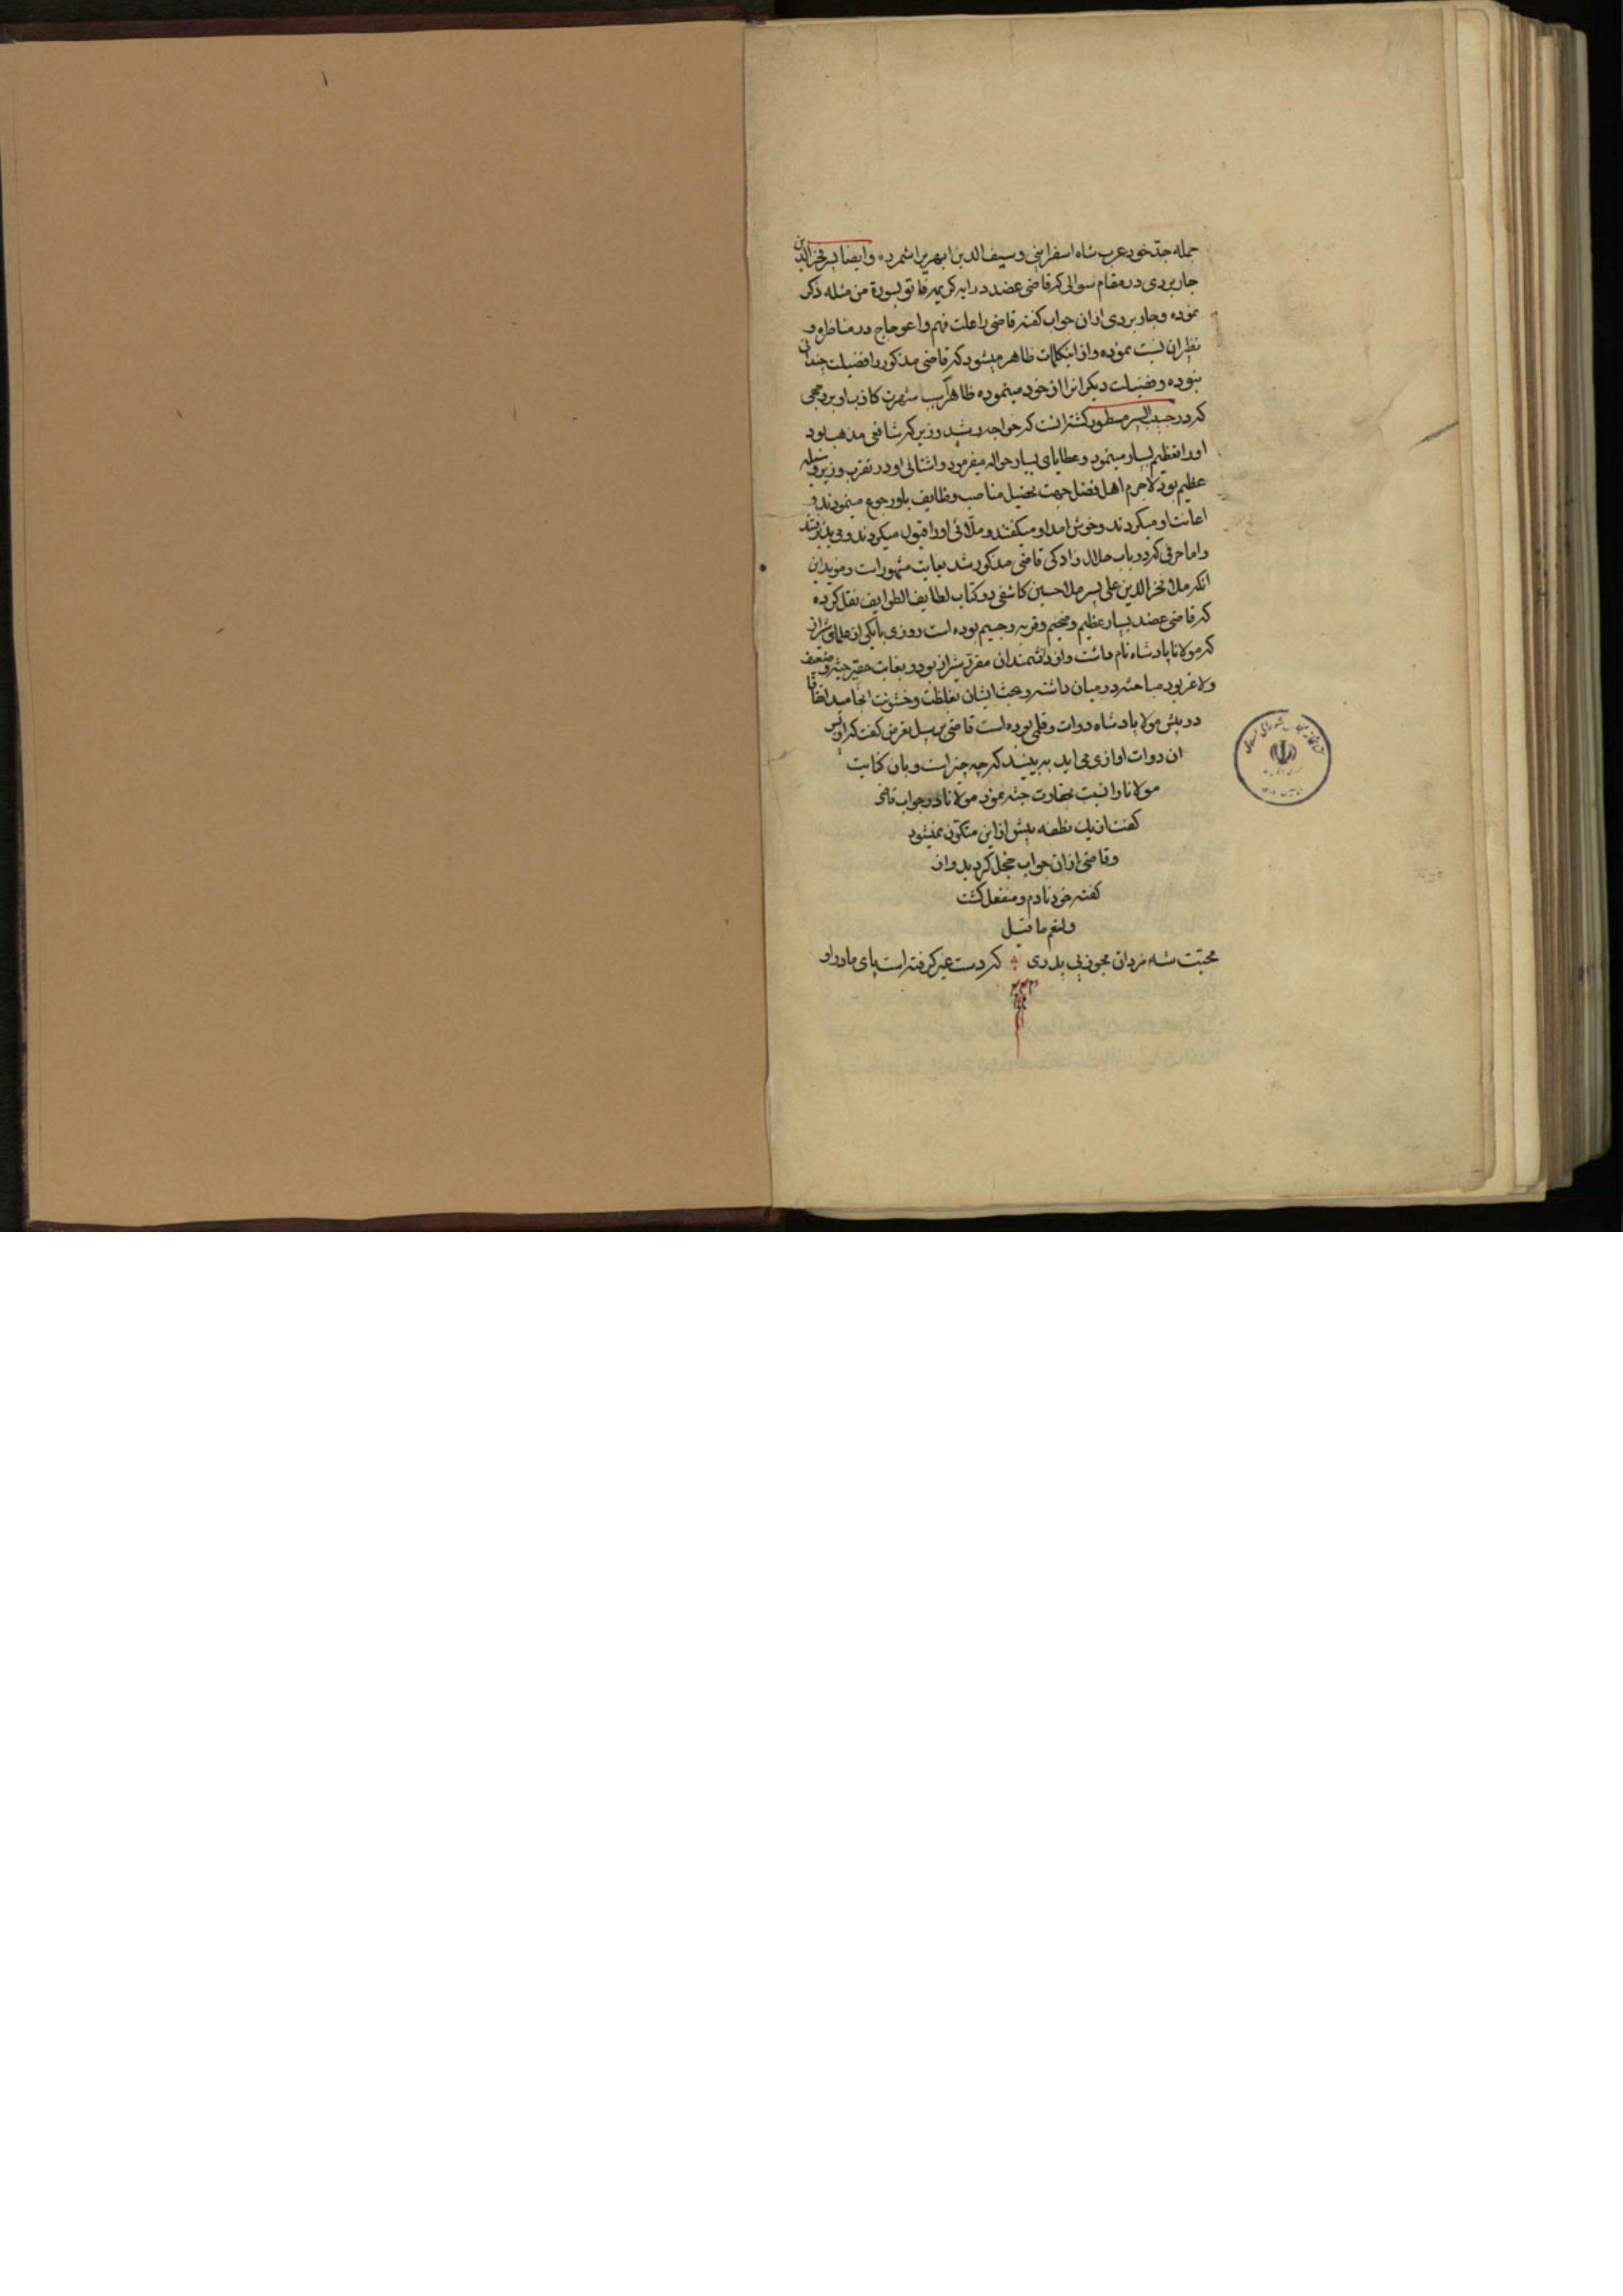 جمله جد خود عرب شاه اسفراینی و سیف الدین ابهری را شمرده و ایضا پسر فخر الدین
جاربردی در مقام سوالی که قاضی عضد در ایه کریمه فاتوا بسورة من مثله ذکر
نموده و جاربردی ازان جواب گفته قاضی را علت فهم و اعوجاج در مناظره و
نظر ان نسبت نموده و از اینکلمات ظاهر میشود که قاضی مذکور را فضیلت چندانی
نبوده و فضیلت دیگرانرا از خود مینموده ظاهرا سبب شهرت کاذب او بر وجهی
که در حبیب السیر مسطور گشته انست که خواجه رشید وزیر که شافعی مذهب بود
او را تعظیم بسیار مینمود و عطایای بسیار حواله میفرمود و اشتالی او در تقرب وزیر وسیله
عظیم بود لاجرم اهل فضل جهت تحصیل مناصب و وظایف باو رجوع مینمودند و
اعانت او میکردند و خوش امد او میگفتند و ملائی او را قبول میکردند و می پذیرفتند
و اما حرفی که در باب حلال زادگی قاضی مذکور شد بغایت مشهور است و موید این
انکه ملا فخر الدین علی پسر ملا حسین کاشفی در کتاب لطایف الطوایف نقل کرده
که قاضی عضد بسیار عظیم و ضخیم و فربه و جسیم بوده است روزی با یکی از علمای شیراز
که مولانا پادشاه نام داشت و از دانشمندان مقرر شیراز بود و بغایت حقیر جثه و ضعیف
و لاغر بود مباحثه در میان داشته و بحث ایشان بغلظت و خشونت انجامید اتفاقا
در پیش مولا پادشاه دوات و قلمی بوده است قاضی بر سبیل تعرض گفت که از پس
ان دوات اوازی می اید به بینید که چه چیز است و بان کنایت
مولانا را نسبت بحقارت جثه نمود مولانا در جواب قاضی
گفت از یک نطفه بیش از این متکون نمیشود
و قاضی ازان جواب خجل گردید و از
گفته خود نادم و منفعل گشت
و لنعم ما قیل
محبت شه مردان مجو ز بی پدری که دست غیر گرفته است پای مادر او